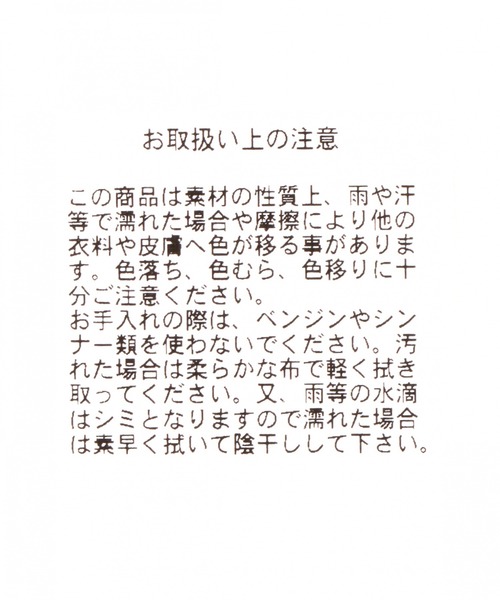 お取扱い上の注意
この商品は素材の性質上、雨や汗
等で濡れた場合や摩擦により他の
衣料や皮膚へ色が移る事がありま
す。色落ち、色むら、色移りに十
分ご注意ください。
お手入れの際は、ベンジンやシン
ナー類を使わないでください。汚
れた場合は柔らかな布で軽く拭き
取ってください。又、雨等の水滴
はシミとなりますので濡れた場合
は素早く拭いて陰干しして下さい。